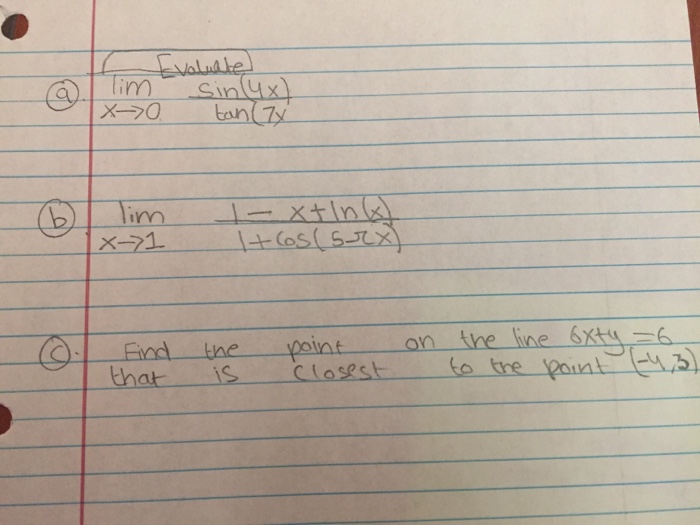 Evaluate
(a). lim sin(4x)
x→0 tan(7x
(b) lim 1 - x + ln(x)
x→1 1 + cos(5πx)
(c). Find the point on the line 6x+y=6
that is closest to the point (-4,3)